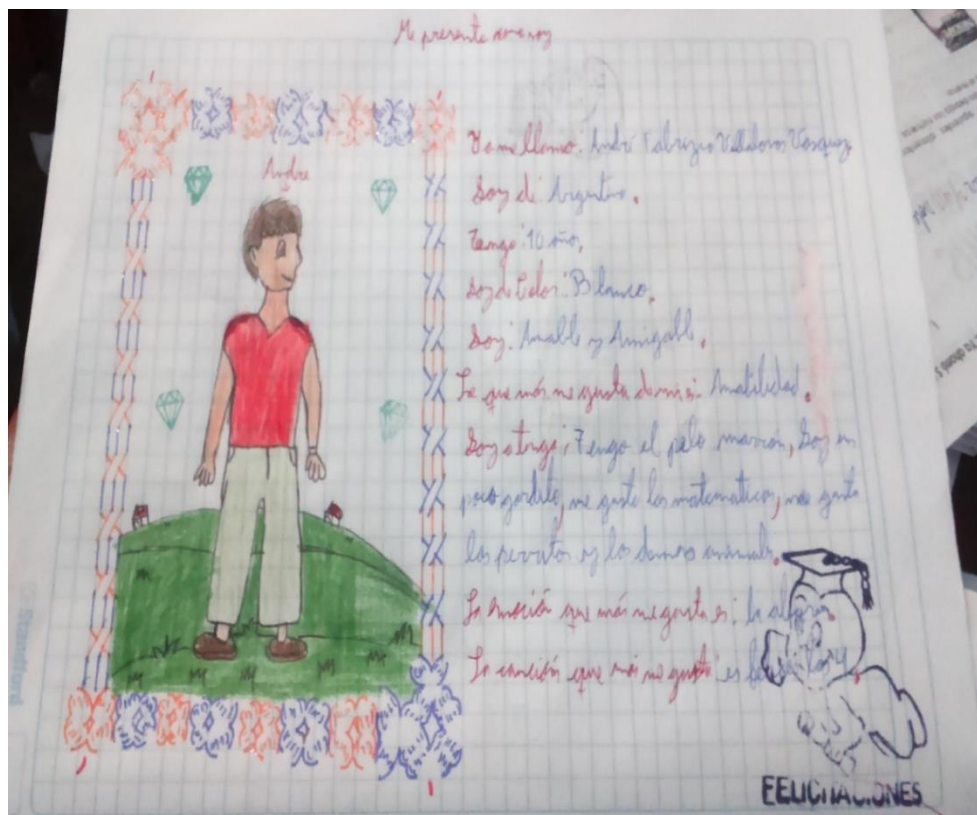 Me presento como soy
Andre
Yo me llamo: André Fabrizio Villalovos Vasquez
Soy de: Argentina.
Tengo: 10 año,
Soy de Color: Blanco.
Soy: Amable y Amigable.
Lo que más me gusta de mi es: Amabilidad.
Soy: Tengo el pelo marrón, Soy un
poco gordito, me gusta las matematicas, me gusta
los perritos y los demas animals.
La emoción que más me gusta es: la alegria.
La canción que más me gusta es
FELICITACIONES
Standford